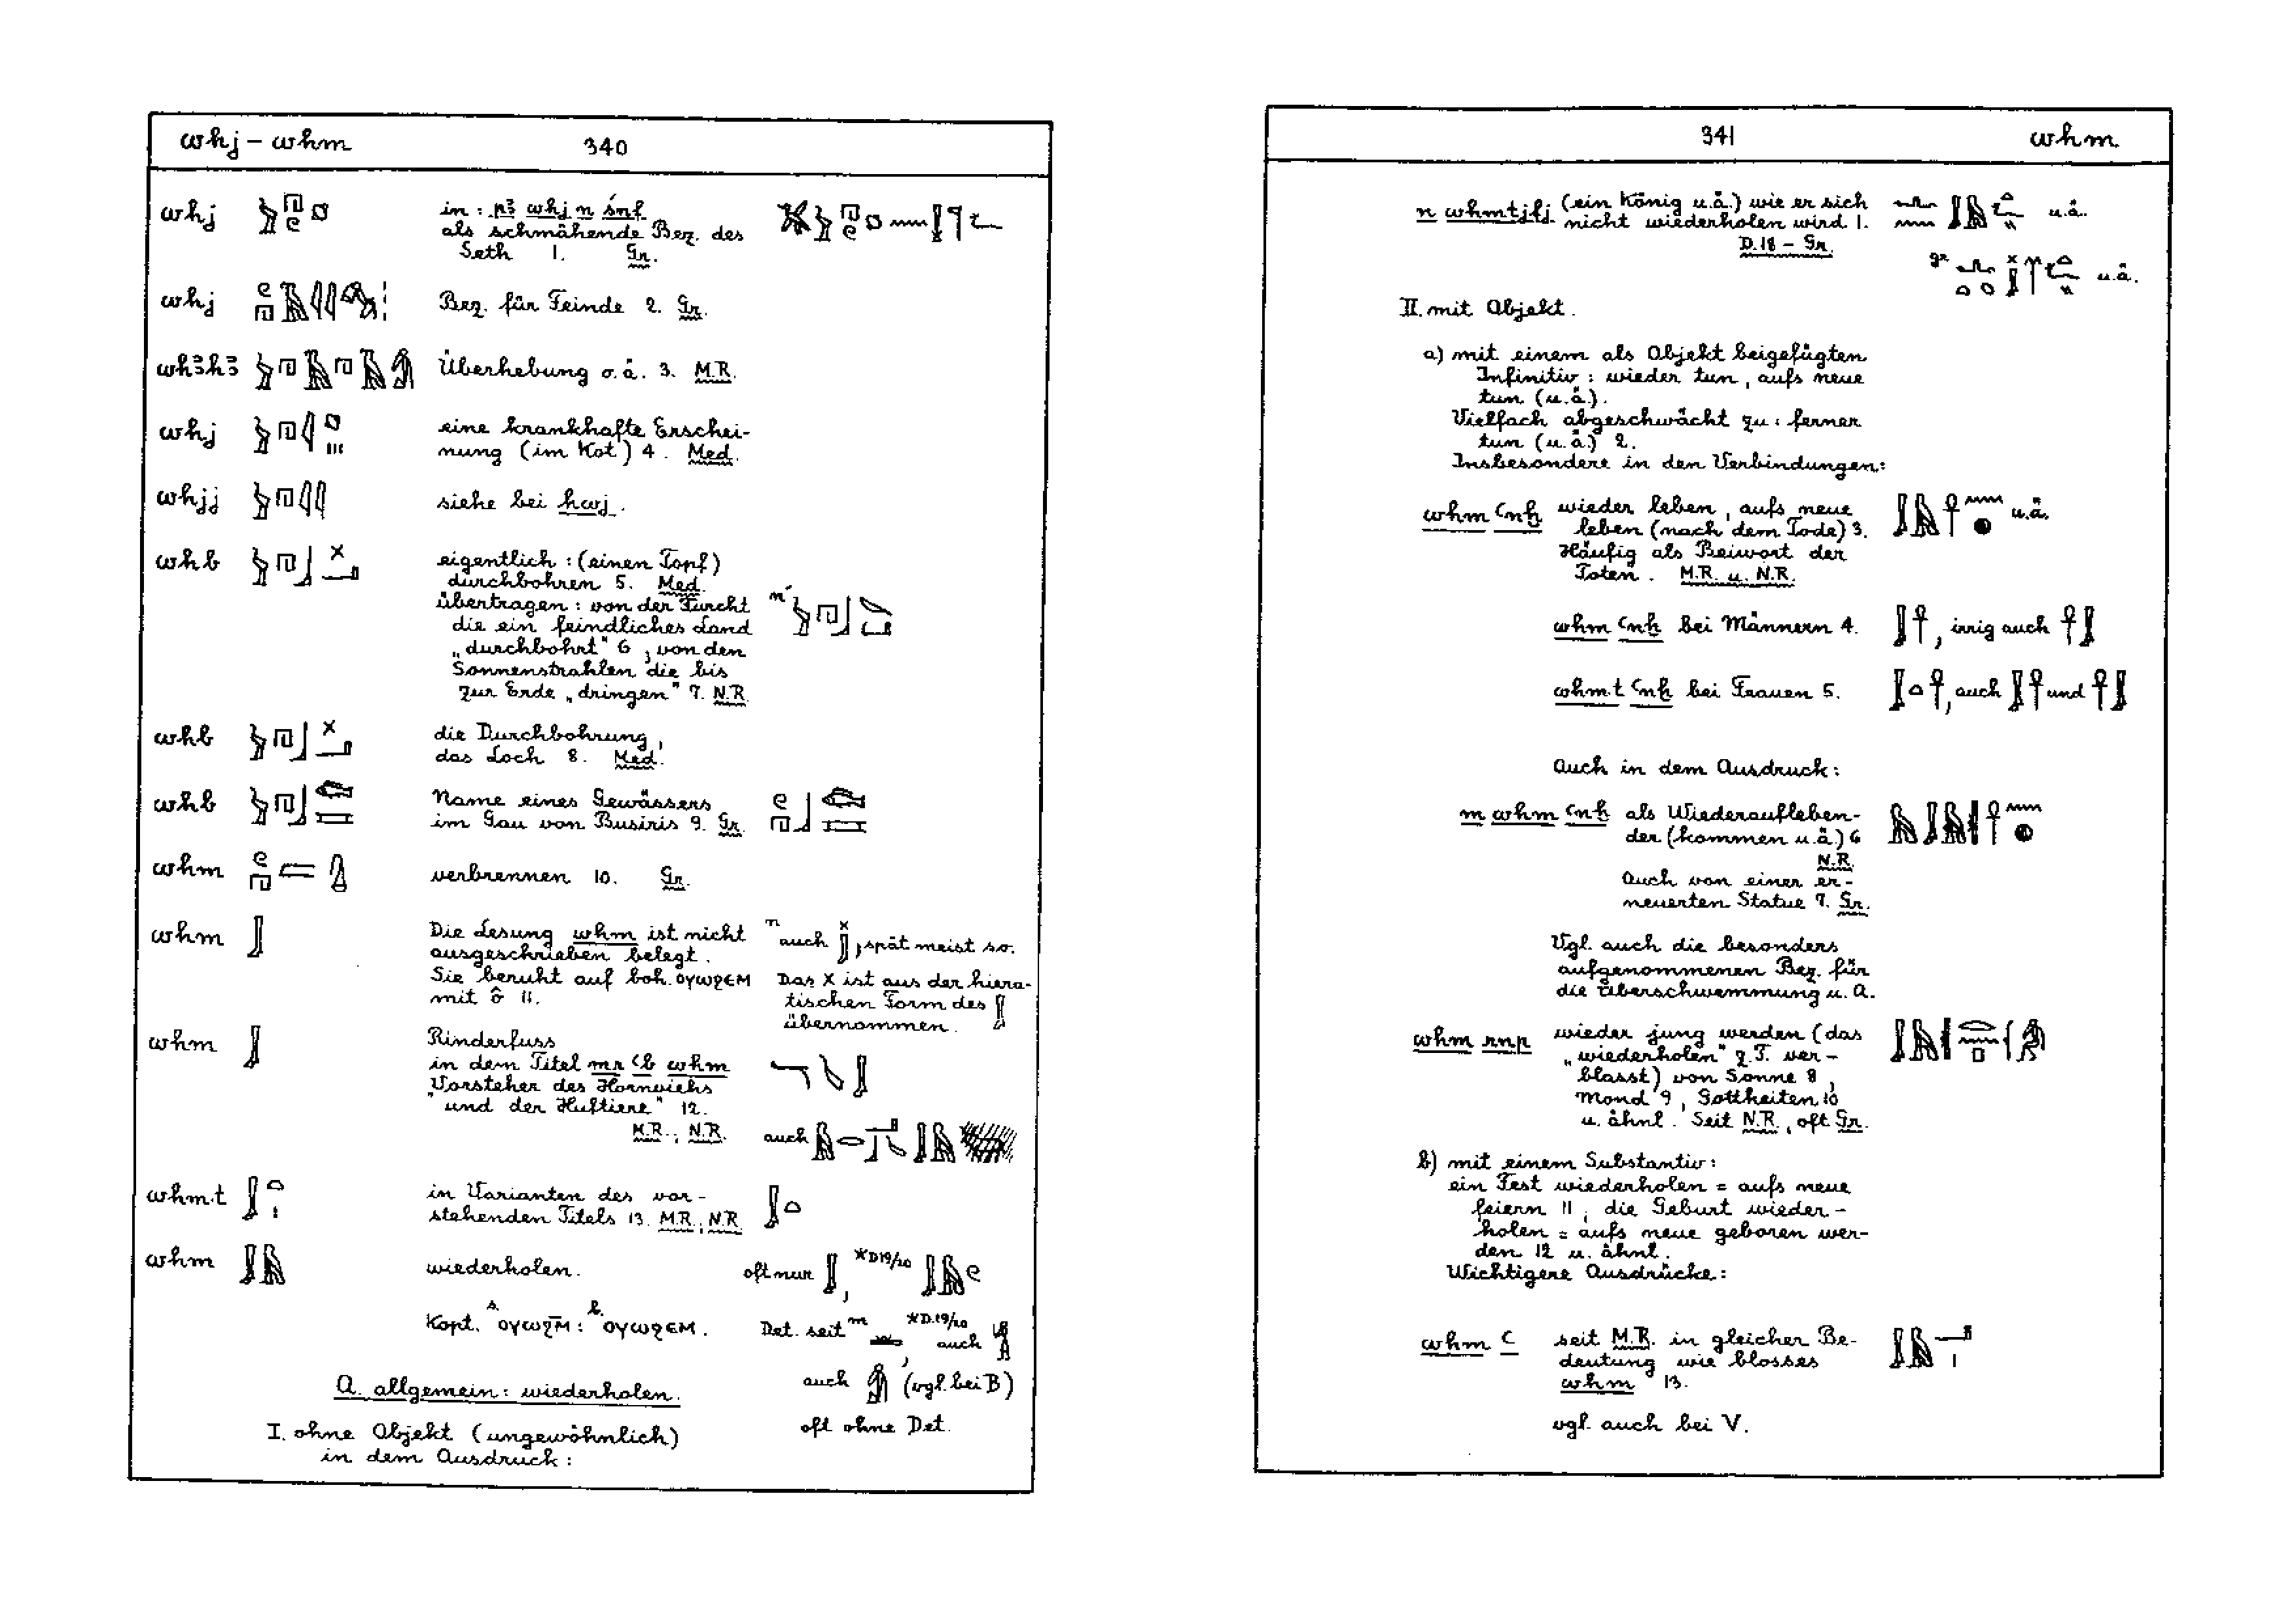 whj – whm 340
whj in: pꜣ whj n śnf
als schmähende Bez. des
Seth 1. Gr.
whj Bez. für Feinde 2. Gr.
whꜣhꜣ Überhebung o.ä. 3. M.R.
whj eine krankhafte Erschei-
nung (im Kot) 4. Med.
whjj siehe bei hwj.
whb eigentlich: (einen Topf)
durchbohren 5. Med.
übertragen: von der Furcht
die ein feindliches Land
„durchbohrt" 6, von den
Sonnenstrahlen die bis
zur Erde „dringen" 7. N.R.
whb die Durchbohrung,
das Loch 8. Med.
whb Name eines Gewässers
im Gau von Busiris 9. Gr.
whm verbrennen 10. Gr.
whm Die Lesung whm ist nicht
ausgeschrieben belegt.
Sie beruht auf boh. ⲟⲩⲱϩⲉⲙ
mit ô 11.
n auch , spät meist so.
Das x ist aus der hiera-
tischen Form des
übernommen.
whm Rinderfuss
in dem Titel mr ꜥb whm
„Vorsteher des Hornviehs
und der Huftiere" 12.
M.R., N.R. auch
whm.t in Varianten des vor-
stehenden Titels 13. M.R., N.R.
whm wiederholen. oft nur , *D19/20
Kopt. s. ⲟⲩⲱϩⲙ̄: b. ⲟⲩⲱϩⲉⲙ. Det. seit m , *D.19/20 auch
A. allgemein: wiederholen. auch (vgl. bei B)
I. ohne Objekt (ungewöhnlich) oft ohne Det.
in dem Ausdruck:
341 whm
n whmtjfj (ein König u.ä.) wie er sich
nicht wiederholen wird 1. u.ä.
D.18 – Gr.
gr u.ä.
II. mit Objekt.
a) mit einem als Objekt beigefügten
Infinitiv: wieder tun, aufs neue
tun (u.ä.).
Vielfach abgeschwächt zu: ferner
tun (u.ä.) 2.
Insbesondere in den Verbindungen:
whm ꜥnḫ wieder leben, aufs neue u.ä.
leben (nach dem Tode) 3.
Häufig als Beiwort der
Toten. M.R. u. N.R.
whm ꜥnḫ bei Männern 4. , irrig auch
whm.t ꜥnḫ bei Frauen 5. , auch und
Auch in dem Ausdruck:
m whm ꜥnḫ als Wiederaufleben-
der (kommen u.ä.) 6
N.R.
Auch von einer er-
neuerten Statue 7. Gr.
Vgl. auch die besonders
aufgenommenen Bez. für
die Überschwemmung u. A.
whm rnp wieder jung werden (das
„wiederholen" z.T. ver-
blasst) von Sonne 8,
Mond 9, Gottheiten 10
u. ähnl. Seit N.R., oft Gr.
b) mit einem Substantiv:
ein Fest wiederholen = aufs neue
feiern 11, die Geburt wieder-
holen = aufs neue geboren wer-
den 12 u. ähnl.
Wichtigere Ausdrücke:
whm ꜥ seit M.R. in gleicher Be-
deutung wie blosses
whm 13.
vgl. auch bei V.